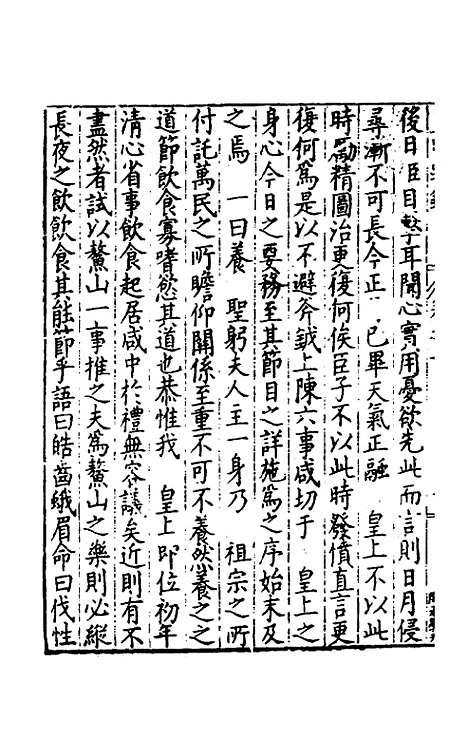 後日臣目擊耳聞心實用憂欲先此而言則日月侵
尋漸不可長今正 已畢天氣正融 皇上不以此
時勵精圖治更復何俟臣子不以此時發憤直言更
復何為是以不避斧鉞上陳六事咸切于 皇上之
身心今日之要務至其節目之詳施為之序始末及
之焉 一曰養 聖躬夫人主一身乃 祖宗之所
付託萬民之所瞻仰關係至重不可不養然養之之
道節飲食寡嗜慾其道也恭惟我 皇上即位初年
清心省事飲食起居咸中於禮無容議矣近則有不
盡然者試以鰲山一事推之夫為鰲山之樂則必縱
長夜之飲飲食其能節乎語曰皓齒蛾眉命曰伐性